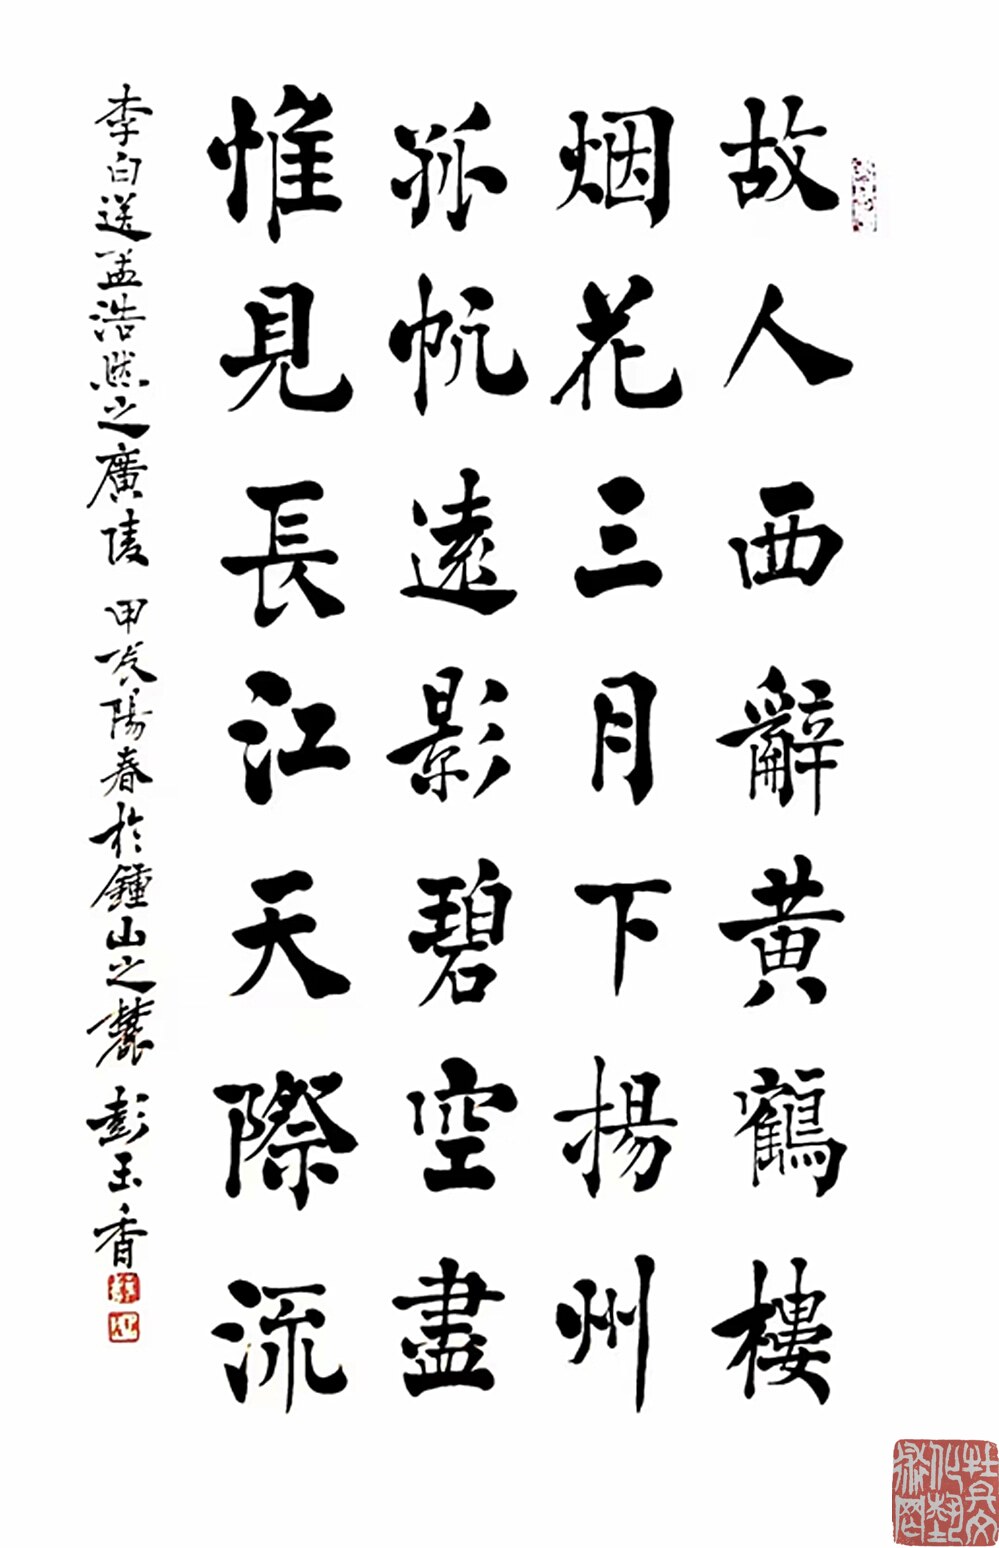 故人西辭黄鶴樓
烟花三月下揚州
孤帆遠影碧空盡
惟見長江天際流
李白送孟浩然之廣陵 甲辰陽春於鍾山之麓 彭玉香
牡丹文化藝術網